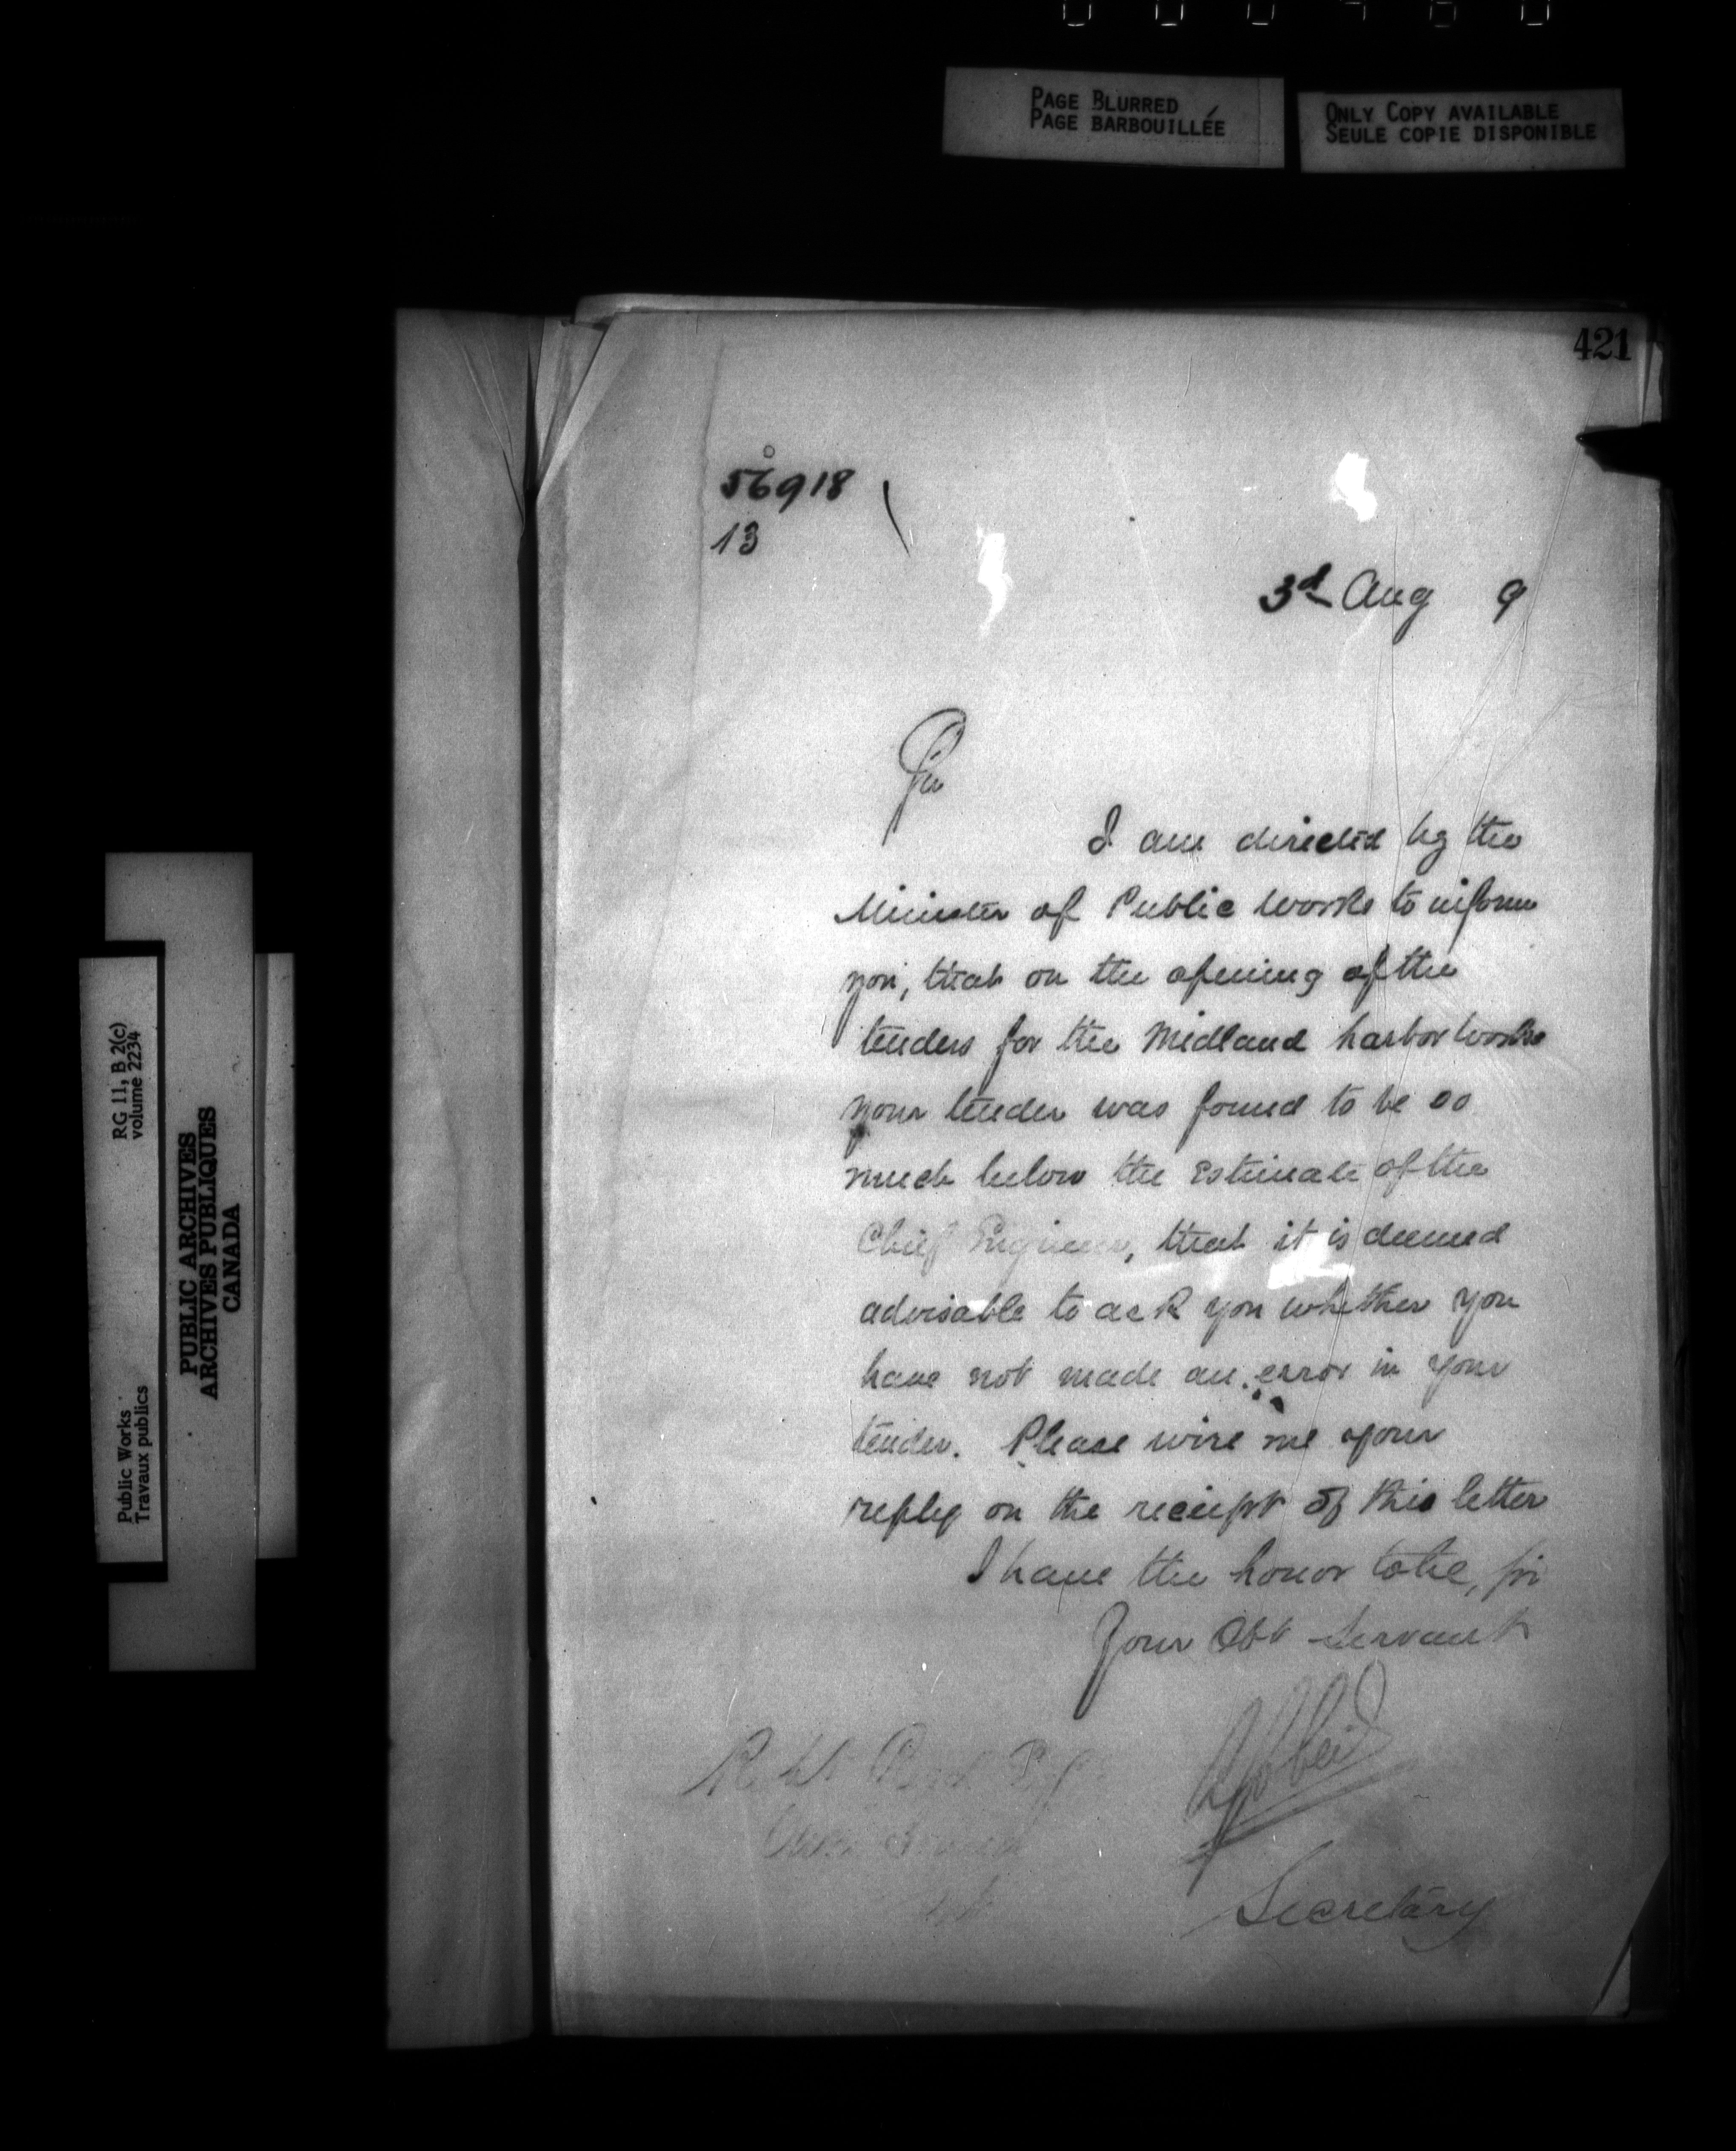 PAGE BLURRED
PAGE BARBOUILLÉE
ONLY COPY AVAILABLE
SEULE COPIE DISPONIBLE
421
56918
13
3d Aug 9
Sir
I am directed by the
Minister of Public Works to inform
you, that on the opening of the
tenders for the Midland harbor works
your tender was found to be so
much below the estimate of the
Chief Engineer, that it is deemed
advisable to ask you whether you
have not made an error in your
tender. Please wire me your
reply on the receipt of this letter
I have the honor to be, Sir
Your Obt Servant
Secretary
RG 11, B 2(c)
volume 2234
Public Works
Travaux publics
PUBLIC ARCHIVES
ARCHIVES PUBLIQUES
CANADA